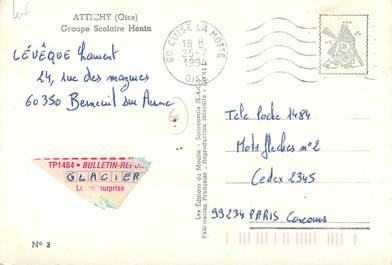 ATTICHY (Oise)
Groupe Scolaire Hénin
LÉVÊQUE Laurent
24, rue des magnes
60350 Berneuil sur Aisne
60 CUISE LA MOTTE
18 H
25-7
OISE
TP1484 • BULLETIN-REPON
GLACIER
surprise
N° 3
Les Éditions du Moulin
Fabrication Française - Reproduction interdite
Tele Poche 1484
Mots fleches n°2
Cedex 2345
99234 PARIS Concours